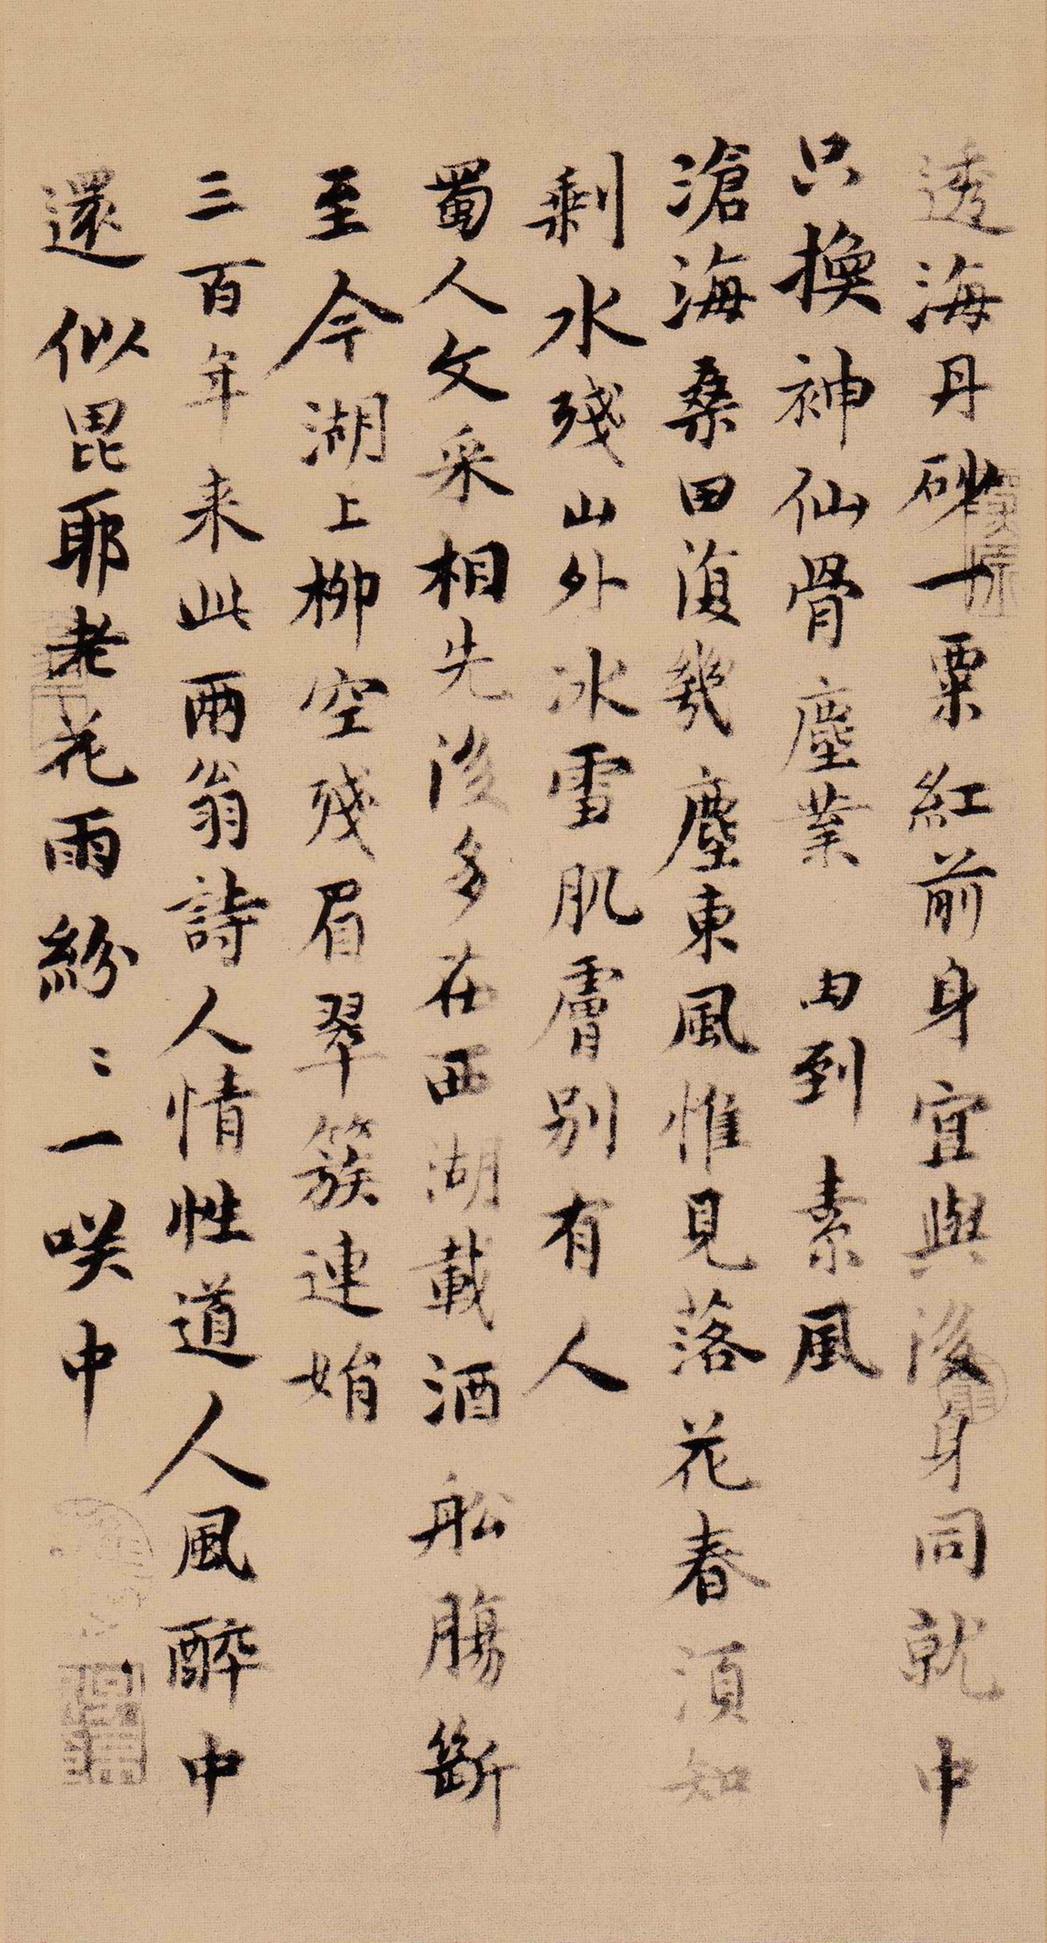 透海丹砂一粟紅前身宜與後身同就中
只換神仙骨塵業 由到素風
滄海桑田復幾塵東風惟見落花春須知
剩水殘山外冰雪肌膚別有人
蜀人文采相先後多在西湖載酒舩腸斷
至今湖上柳空殘眉翠簇連娟
三百年来此兩翁詩人情性道人風醉中
還似毘耶老花雨紛〻一咲中